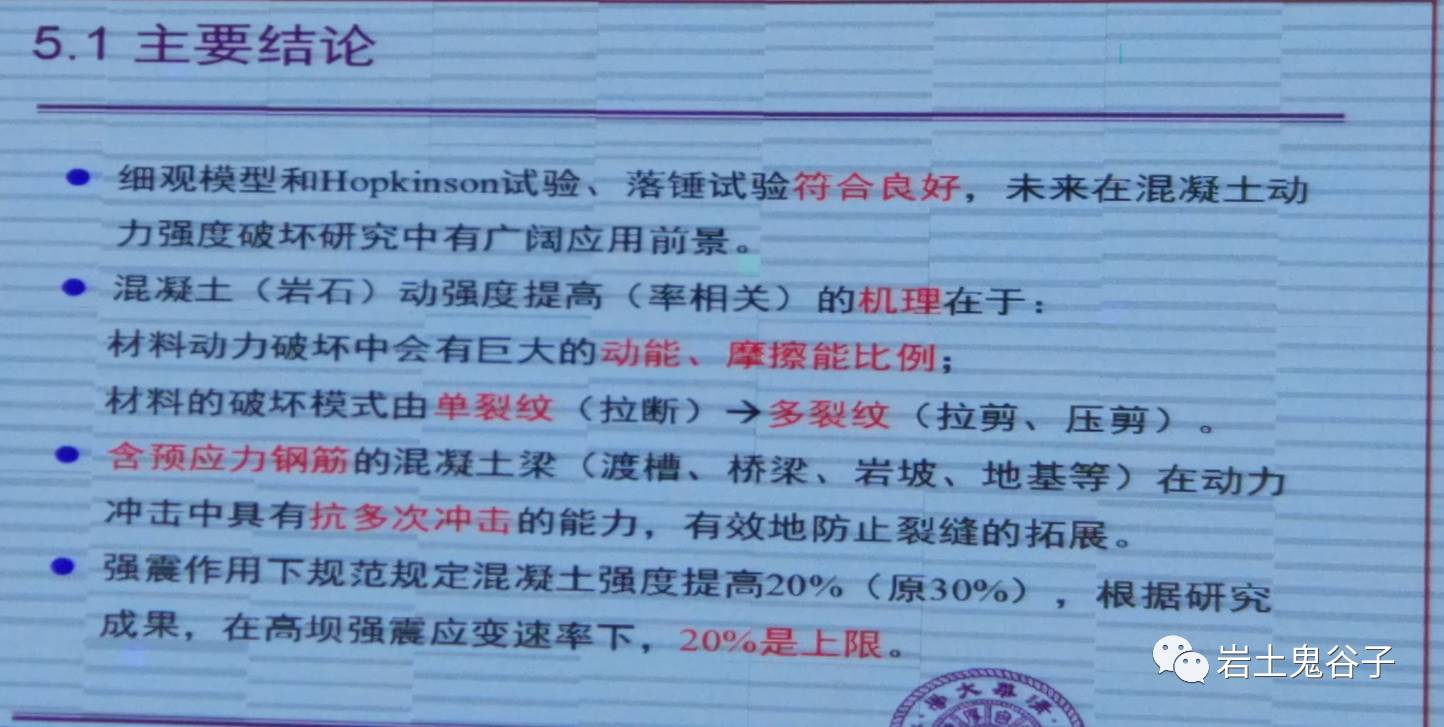 5.1 主要结论
细观模型和Hopkinson试验、落锤试验符合良好，未来在混凝土动
力强度破坏研究中有广阔应用前景。
混凝土（岩石）动强度提高（率相关）的机理在于：
材料动力破坏中会有巨大的动能、摩擦能比例；
材料的破坏模式由单裂纹（拉断）→多裂纹（拉剪、压剪）。
含预应力钢筋的混凝土梁（渡槽、桥梁、岩坡、地基等）在动力
冲击中具有抗多次冲击的能力，有效地防止裂缝的拓展。
强震作用下规范规定混凝土强度提高20%（原30%），根据研究
成果，在高坝强震应变速率下，20%是上限。
岩土鬼谷子